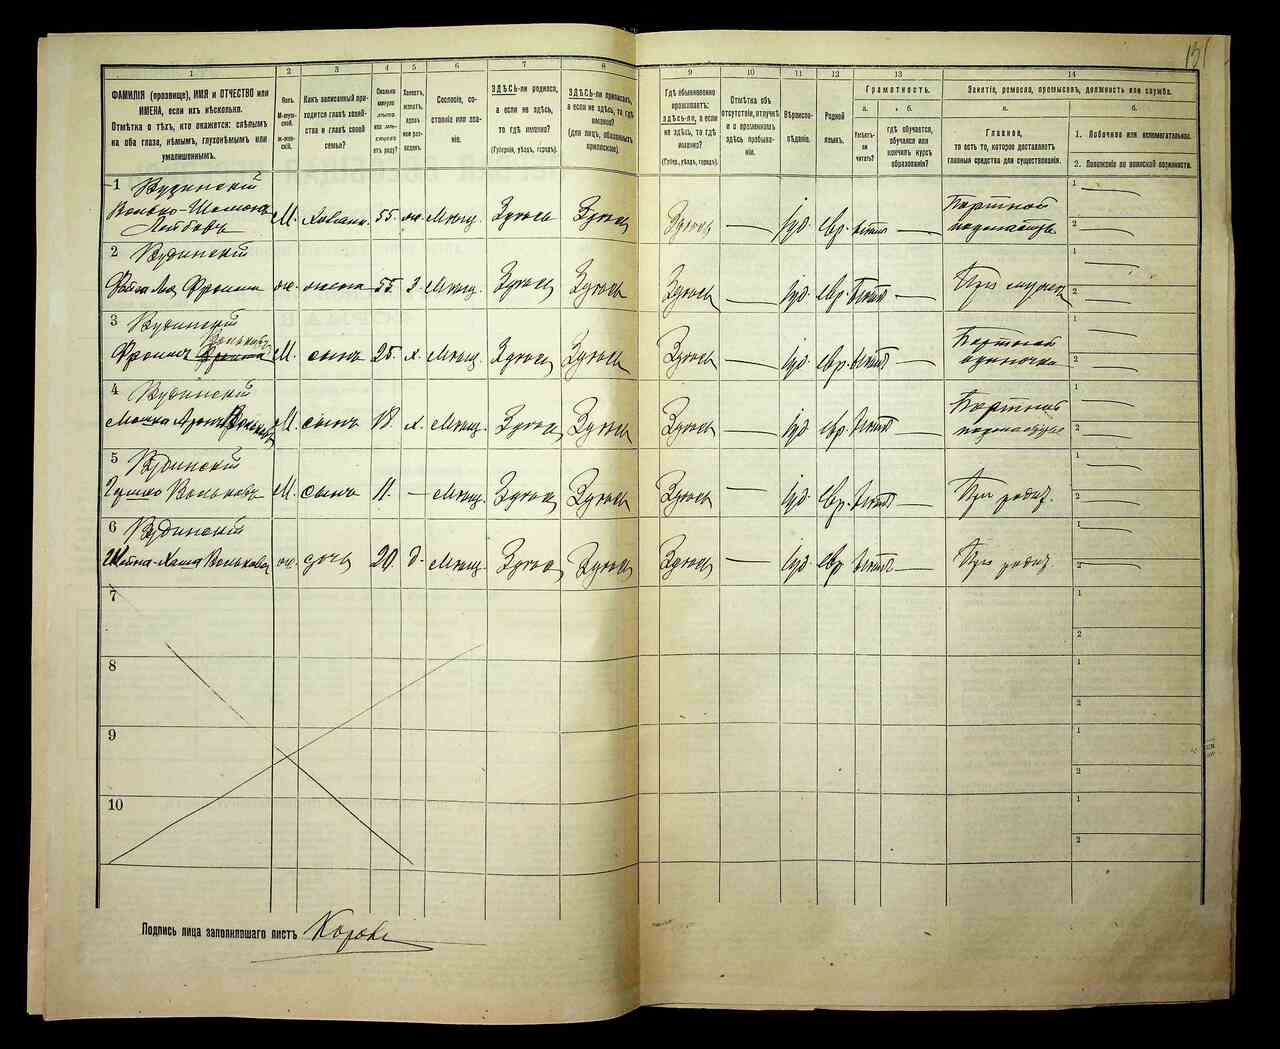 131
1 2 3 4 5 6 7 8 9 10 11 12 13 14
ФАМИЛІЯ (прозвище), ИМЯ и ОТЧЕСТВО или
ИМЕНА, если ихъ нѣсколько.
Отмѣтка о тѣхъ, кто окажется: слѣпымъ
на оба глаза, нѣмымъ, глухонѣмымъ или
умалишеннымъ.
Полъ.
М-мужской.
ж-женскій.
Какъ записанный приходится главѣ хозяйства и главѣ своей семьи?
Сколько минуло лѣтъ или мѣсяцевъ отъ роду?
Холостъ, женатъ, вдовъ или разведенъ.
Сословіе, состояніе или званіе.
ЗДѢСЬ-ли родился,
а если не здѣсь,
то гдѣ именно?
(Губернія, уѣздъ, городъ).
ЗДѢСЬ-ли приписанъ,
а если не здѣсь, то гдѣ
именно?
(для лицъ, обязанныхъ
припискою).
Гдѣ обыкновенно
проживаетъ:
здѣсь-ли, а если
не здѣсь, то гдѣ
именно?
(Губерн., уѣздъ, городъ).
Отмѣтка объ
отсутствіи, отлучкѣ
и о временномъ
здѣсь пребываніи.
Вѣроисповѣданіе.
Родной
языкъ.
Грамотность.
а. б.
Умѣетъ-ли читать?
гдѣ обучается,
обучался или
кончилъ курсъ
образованія?
Занятіе, ремесло, промыселъ, должность или служба.
а. б.
Главное,
то есть то, которое доставляетъ
главныя средства для существованія.
1. Побочное или вспомогательное.
2. Положеніе по воинской повинности.
1 Будинскій
М. хозяинъ 55. ж. Мѣщ. Здѣсь Здѣсь Здѣсь — іуд. евр. — Портной 1 —
2 —
2 Будинскій
ж. жена 55. з. Мѣщ. Здѣсь Здѣсь Здѣсь — іуд. евр. — При мужѣ 1 —
2 —
3 Будинскій
Вольковъ
М. сынъ 25. х. Мѣщ. Здѣсь Здѣсь Здѣсь — іуд. евр. Портной 1 —
одиночка 2 —
4 Будинскій
М. сынъ 18. х. Мѣщ. Здѣсь Здѣсь Здѣсь — іуд. евр. Портной 1 —
2 —
5 Будинскій
Вольковъ М. сынъ 11. — Мѣщ. Здѣсь Здѣсь Здѣсь — іуд. евр. — При родит. 1 —
2 —
6 Будинскій
Шейна-Хаша Волькова ж. дочь 20. д. Мѣщ. Здѣсь Здѣсь Здѣсь — іуд. евр. — При родит. 1 —
2 —
7 1
2
8 1
2
9 1
2
10 1
2
Подпись лица заполнявшаго листъ